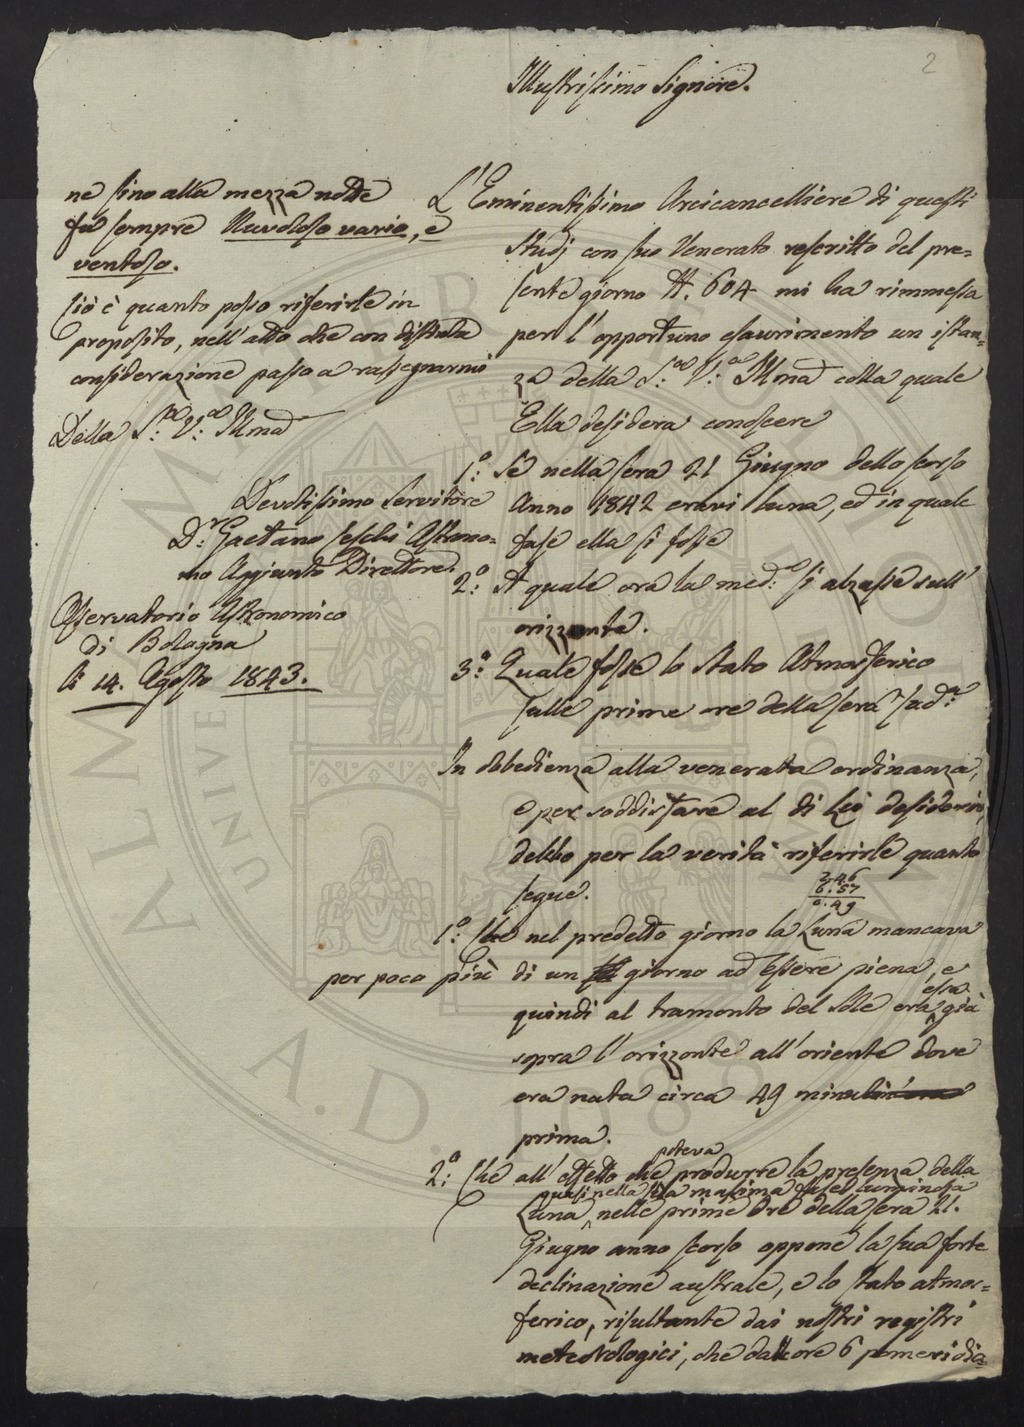 2
Illustrissimo Signore.
L'Eminentissimo Arcicancelliere di questi
studj con suo Venerato rescritto del pre=
sente giorno N. 604 mi ha rimmessa
per l'opportuno esaurimento un istan=
za della S:ra V:ra Illma colla quale
Ella desidera conoscere
1°: Se nella sera 21 Giugno dello scorso
Anno 1842 eravi luna, ed in quale
fase ella si fosse
2°: A quale ora la med:a si alzasse sull'
orizzonte.
3°: Quale fosse lo stato Atmosferico
sulle prime ore della sera sud:a
In obbedienza alla venerata ordinanza,
e per soddisfare al di Lei desiderio,
debbo per la verità riferirle quanto
segue.
7.46
6.57
0.49
1°: Che nel predetto giorno la Luna mancava
per poco più di un giorno ad essere piena, e
quindi al tramonto del sole era essa già
sopra l'orizzonte all'oriente dove
era nata circa 49 minuti
prima.
2°: Che all'effetto che poteva produrre la presenza della
Luna quasi nella sua massima fase luminosa nelle prime Ore della sera 21.
Giugno anno scorso oppone la sua forte
declinazione australe, e lo stato atmos=
ferico, risultante dai nostri registri
meteorologici, che dalle ore 6 pomeridia=
ne sino alla mezza notte
fu sempre Nuvoloso vario, e
ventoso.
Ciò è quanto posso riferirle in
proposito, nell'atto che con distinta
considerazione passo a rassegnarmi
Della S:ra V:ra Illma
Devotissimo Servitore
Dr. Gaetano Ceschi Astrono=
mo Aggiunto Direttore.
Osservatorio Astronomico
di Bologna
li 14. Agosto 1843.
ALMA MATER STUDIORUM
A.D. 1088